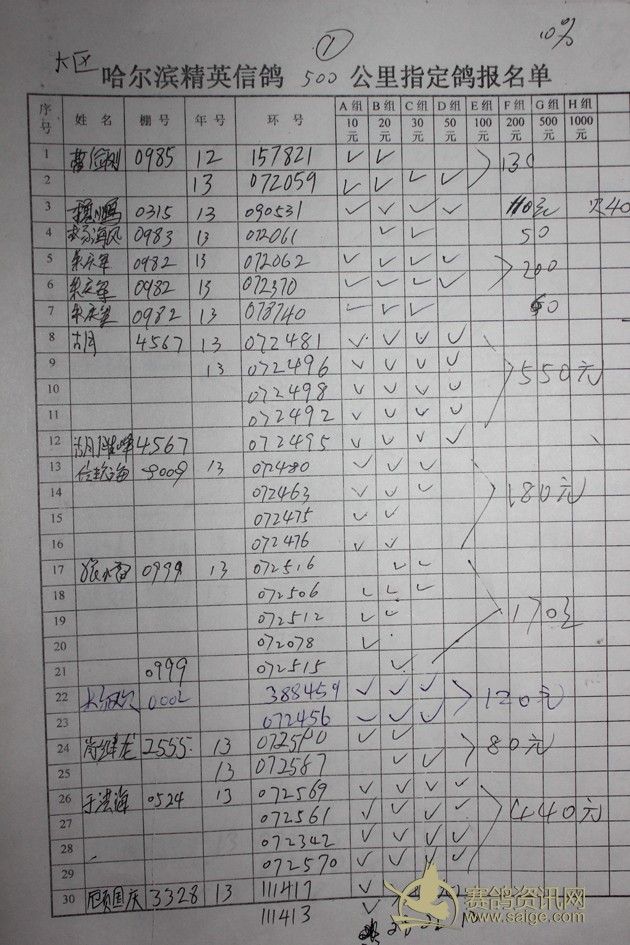 ①
10%
大区
哈尔滨精英信鸽 500 公里指定鸽报名单
序号 姓名 棚号 年号 环号 A组 B组 C组 D组 E组 F组 G组 H组
10元 20元 30元 50元 100元 200元 500元 1000元
1 0985 12 157821 ✓ ✓ 130
2 13 072059 ✓ ✓ ✓ ✓
3 0315 13 090531 ✓ ✓ ✓ ✓ 110元 欠40
4 0983 13 072061 ✓ ✓ 50
5 0982 13 072062 ✓ ✓ ✓ ✓ 200
6 0982 13 072370 ✓ ✓ ✓ ✓
7 0982 13 073740 ✓ ✓ ✓ 60
8 4567 13 072481 ✓ ✓ ✓ ✓ 550元
9 13 072496 ✓ ✓ ✓ ✓
10 072498 ✓ ✓ ✓ ✓
11 072492 ✓ ✓ ✓ ✓
12 4567 072495 ✓ ✓ ✓ ✓
13 9009 13 072480 ✓ ✓ ✓ 180元
14 072463 ✓ ✓ ✓
15 072475 ✓ ✓
16 072476 ✓ ✓
17 0999 13 072516 ✓ ✓ 170元
18 072506 ✓ ✓ ✓
19 072512 ✓ ✓
20 072078 ✓
21 0999 072515 ✓
22 0002 388459 ✓ ✓ ✓ 120元
23 072456 ✓ ✓ ✓
24 2555 13 072590 ✓ ✓ 80元
25 13 072587 ✓ ✓
26 于洪海 0524 13 072569 ✓ ✓ ✓ ✓ 440元
27 072561 ✓ ✓ ✓ ✓
28 072342 ✓ ✓ ✓ ✓
29 072570 ✓ ✓ ✓ ✓
30 顾国庆 3328 13 111417 ✓
111413 ✓
赛鸽资讯网
www.saige.com